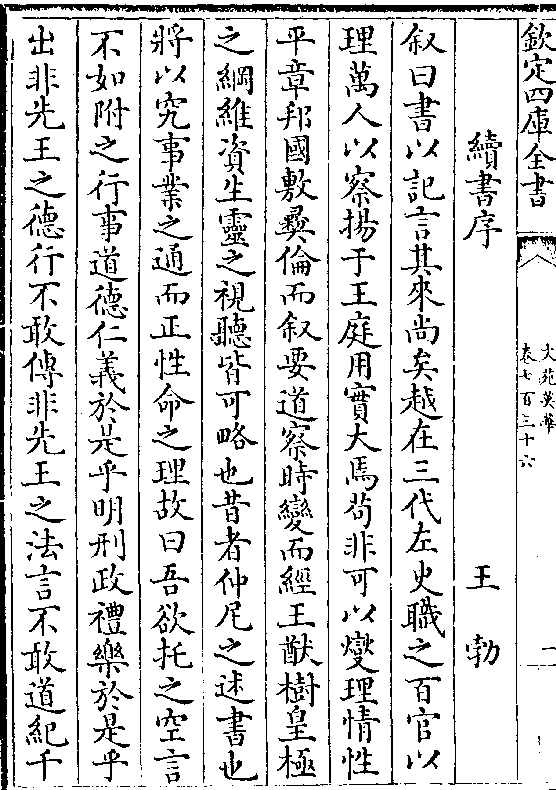 欽定四庫全書
文苑英華
卷七百三十六
一
續書序 王勃
叙曰書以記言其來尚矣越在三代左史職之百官以
理萬人以察揚于王庭用實大焉苟非可以燮理情性
平章邦國敷彛倫而叙要道察時變而經王猷樹皇極
之綱維資生靈之視聽皆可略也昔者仲尼之述書也
將以究事業之通而正性命之理故曰吾欲托之空言
不如附之行事道德仁義於是乎明刑政禮樂於是乎
出非先王之德行不敢傳非先王之法言不敢道紀千